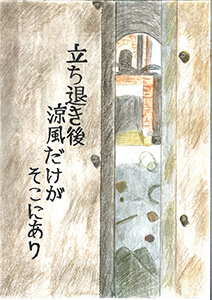 立ち退き後
涼風だけが
そこにあり